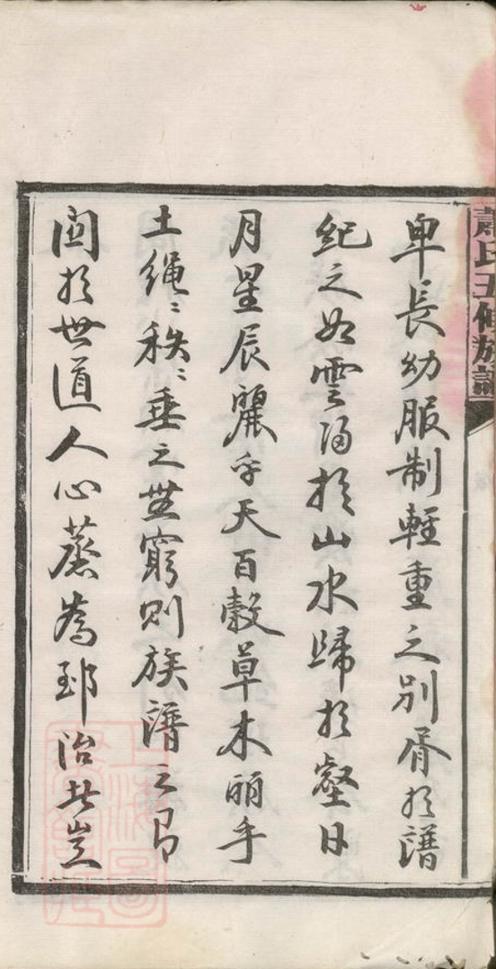 蕭氏五修族譜
卑長幼服制輕重之別胥於譜
紀之如雲於山水歸於壑日
月星辰麗乎天百穀草木丽乎
土繩〻秩〻垂之無窮則族譜之所
関於世道人心蒸為郅治者豈
上海圖書館藏